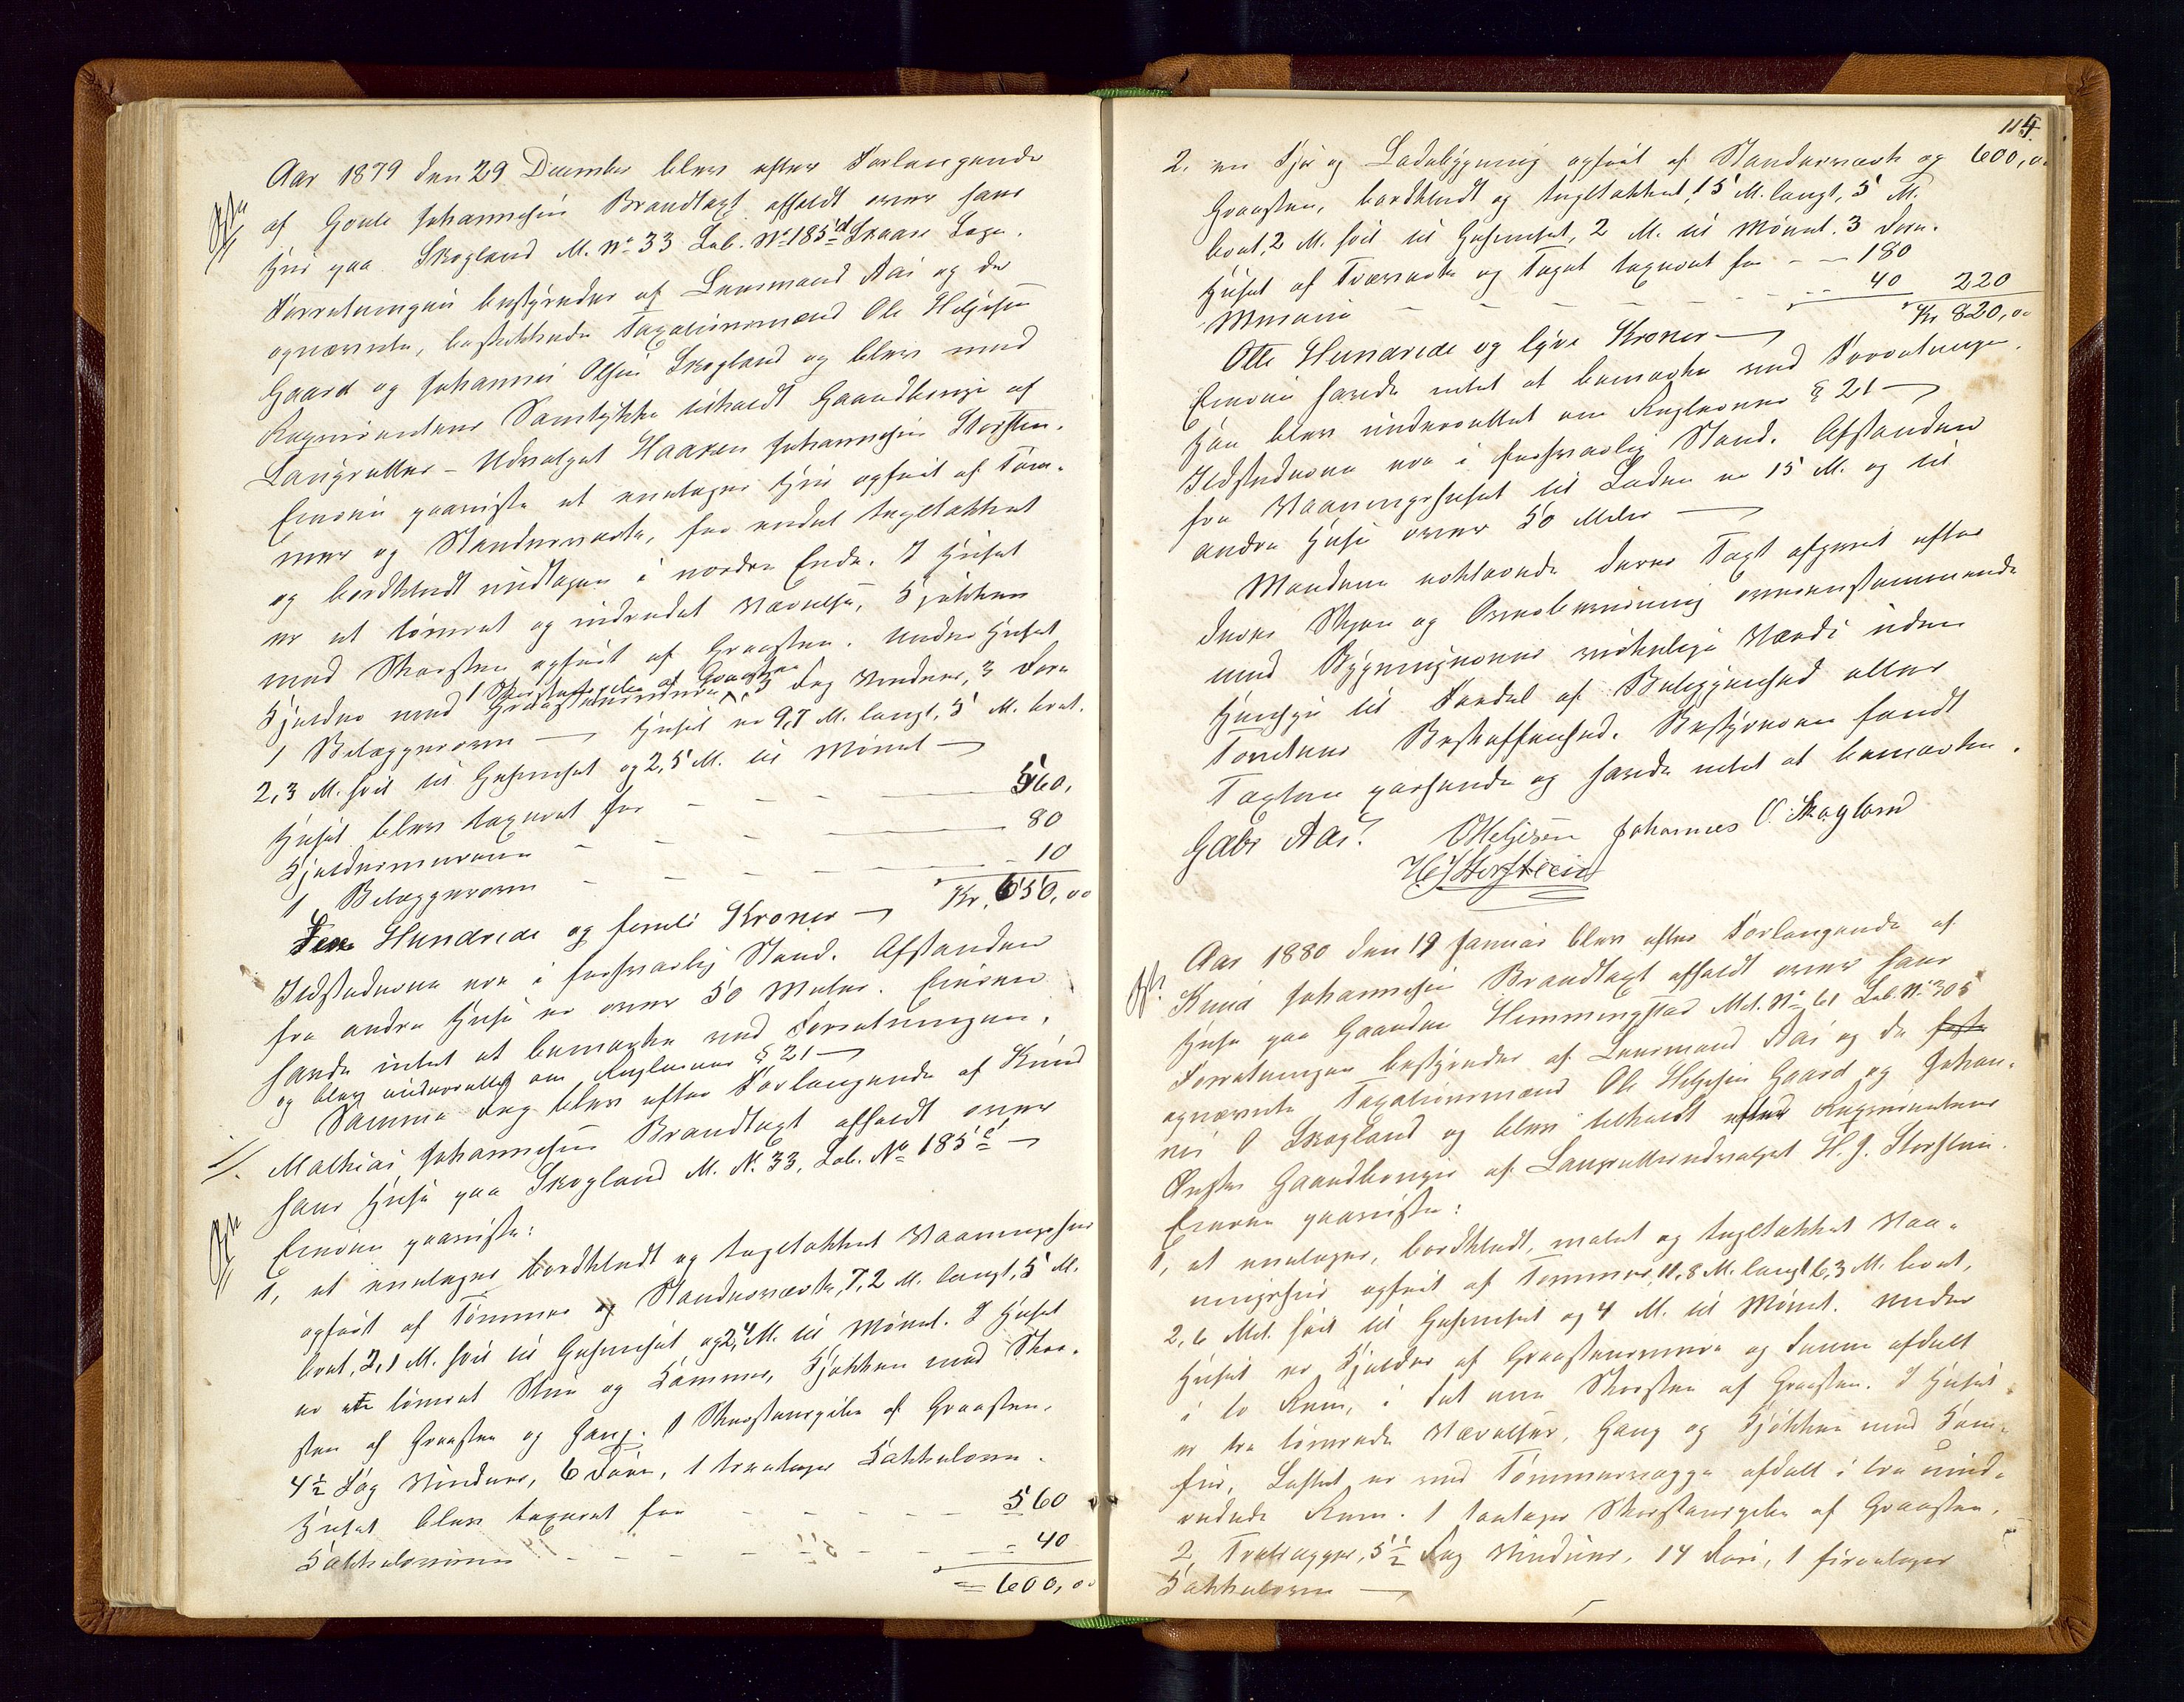 Aar 1879 den 29 December blev efter Forlangende
af Goule Johannesen Brandtaxt afholdt over hans
Hus paa Skogland M. No 33 Løb. No 185 d Skaare Sogn.
Forretningen bestyredes af Lensmand Aai og de
opnævnte, beskikkede Taxationsmænd Ole Helgesen
Gaard og Johannes Olsen Skogland og blev med
Reqvirentens Samtykke tilkaldt Gaardbruger af
Langraller-Udvalget Haaken Johannesen Storsten.
Eieren paaviste et enetages Hus opført af Tøm-
mer og Standerværk, for endel tegltækket
og bordklædt undtagen i nordre Ende. I Huset
er et tømret og indredet Værelse, Kjøkken
med Skorsten opført af Graasten. Under Huset
1 Skorstenspibe af Graasten
Kjelder med Graastensmure, 3 Fag Vinduer, 3 Døre
1 Bilæggerovn — Huset er 9,7 M. langt, 5 M. bredt.
2,3 M. høit til Gesimset og 2,5 M. til Mønet —
Huset blev taxeret for - - - 560,
Kjeldermurene - - - 80
1 Bilæggerovn - - - 10
Kr. 650,00
Sex Hundrede og femti Kroner —
Ildstederne ere i forsvarlig Stand. Afstanden
fra andre Huse er over 50 Meter. Eieren
havde intet at bemærke ved Forretningen.
og blev underrettet om Reglernes § 21 —
Samme Dag blev efter Forlangende af Knud
//. Mathias Johannesen Brandtaxt afholdt over
hans Huse paa Skogland M. N. 33, Løb. No 185 e —
Eieren paaviste:
1, et enetages bordklædt og tegltækket Vaaningshus
opført af Tømmer og Standerværk, 7,2 M. langt, 5 M.
bredt, 2,1 M. høit til Gesimset og 2,4 M. til Mønet. I Huset
er en tømret Stue og Kammer, Kjøkken med Skor-
sten af Graasten og Gang. 1 Skorstenspibe af Graasten,
4½ Fag Vinduer, 6 Døre, 1 treetages Kakkelovn.
Huset blev taxeret for - - - 560
Kakkelovnen - - - 40
= 600,00
114
2. en Fjøs og Ladebygning opført af Standerværk og 600,00
Graasten, bordklædt og tegltækket, 15 M. langt, 5 M.
bredt, 2 M. høit til Gesimset, 2 M. til Mønet. 3 Døre.
Huset af Træværk og Taget taxeret for - - 180
Murene - - - 40 220
Kr 820,00
Otte Hundrede og tyve Kroner —
Eieren havde intet at bemærke ved Forretningen.
Han blev underrettet om Reglernes § 21 —
Ildstederne ere i forsvarlig Stand. Afstanden
fra Vaaningshuset til Laden er 15 M. og til
andre Huse over 50 Meter —
Mændene erklærede deres Taxt afgivet efter
deres Skjøn og Overbevisning overensstemmende
med Bygningernes virkelige Værdi uden
Hensyn til Fordel af Beliggenhed eller
Tomtens Beskaffenhed. Bestyreren fandt
Taxten passende og havde intet at bemærke.
Gabr Aai. OHelgesen Johannes O. Skogland
HJStorsteen
Aar 1880 den 19 Januar blev efter Forlangende af
Knud Johannesen Brandtaxt afholdt over hans
Huse paa Gaarden Hemmingstad Mat. No 61 Løb. No 305
Forretningen bestyredes af Lensmand Aai og de faste
opnævnte Taxationsmænd Ole Helgesen Gaard og Johan-
nes O Skogland og blev tilkaldt efter Reqvirentens
Ønske Gaardbruger af Langrullerudvalget H. J. Storsten.
Eieren paaviste:
1, et enetages, bordklædt, malet og tegltækket Vaa-
ningshus opført af Tømmer, 11,8 M. langt 6,3 M. bredt,
2,6 Met. høit til Gesimset og 4 M. til Mønet. Under
Huset er Kjelder af Graastensmure og denne afdelt
i to Rum, i det ene Skorsten af Graasten. I Huset
er tre tømrede Værelser, Gang og Kjøkken med Kom-
fur, Loftet er med Tømmervægge afdelt i tre uind-
redede Rum. 1 toetages Skorstenspibe af Graasten.
2 Trætrapper, 5½ Fag Vinduer, 14 Døre, 1 fireetages
Kakkelovn —